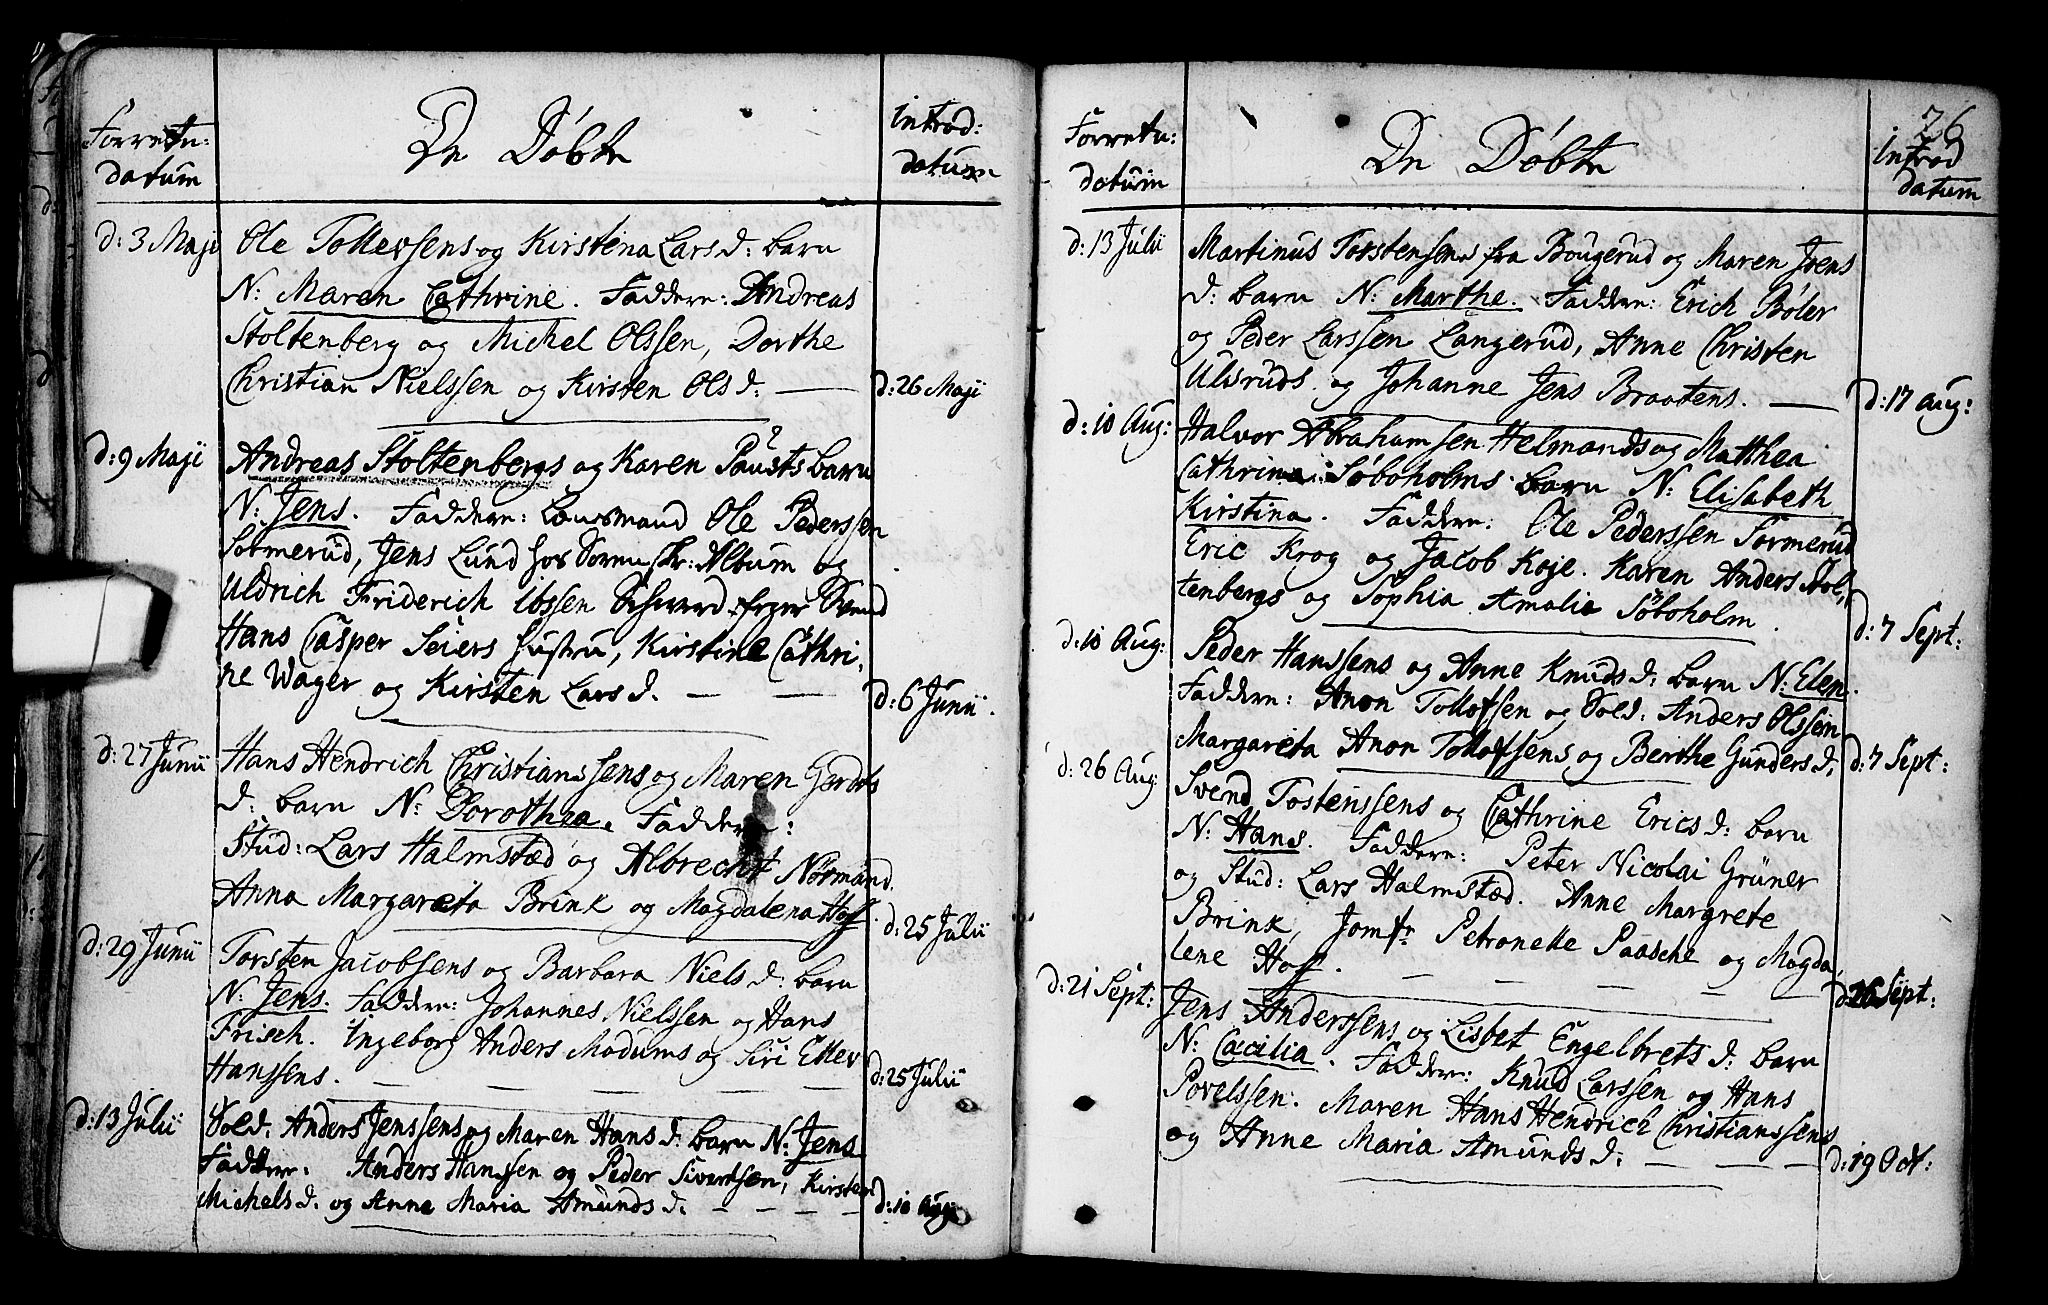 Forretn:
datum
De Döbte
introd:
datum
d: 3 Maji
Ole Tollevsens og Kirstena Larsd: barn
N: Maren Cathrine. Faddere: Andreas
Stoltenberg og Michel Olssen, Dorthe
Christian Nielssen og Kirsten Olsd. —
d: 26 Maji
d: 9 Maji
Andreas Stoltenbergs og Karen Pausts barn
N: Jens. Faddere: Ole Pederssen
Sørmerud, Jens Lund hos Album og
Uldrich Friderich Ibssen Svend
Hans Casper Seiers Hustru, Kirstine Cathri-
ne Wager og Kirsten Larsd. — —
d: 6 Junii.
d: 27 Junii
Hans Hendrich Christianssens og Maren Gerdts
d: barn N: Dorothea. Faddere:
Stud: Lars Halmstæd og Albrecht Normand.
Anna Margareta Brink og Magdalena Hoff.
d: 25 Julii
d: 29 Junii
Torsten Jacobsens og Barbara Nielsd: barn
N: Jens. Faddere: Johannes Nielssen og Hans
Frisch. Ingeborg Anders Modums og Siri Ellev
Hanssens. — — — — —
d: 25 Julii
d: 13 Julii
Sold. Anders Jenssens og Maren Hansd: barn N: Jens
Faddere. Anders Hanssen og Peder Sivertsen, Kirsten
Michelsd. og Anne Maria Amundsd. — — — —
d: 10 Aug:
26
Forretn:
datum
De Döbte
introd
datum
d: 13 Julii
Martinus Torstensens fra Bougerud og Maren Jens
d: barn N: Marthe. Faddere: Erich Böler
og Peder Larssen Langerud, Anne Christen
Ulsruds og Johanne Jens Braatens. —
d: 17 Aug:
d: 10 Aug:
Halvor Abrahamsen Helmands og Matthea
Cathrina Söboholms barn N: Elisabeth
Kirstina. Faddere: Ole Pederssen Sørmerud
Eric Krog og Jacob Koje. Karen Anders Stol-
tenbergs og Sophia Amalie Söboholm.
d: 7 Sept:
d: 10 Aug:
Peder Hanssens og Anne Knudsd: barn N: Elen.
Faddere: Anon Tollofsen og Sold: Anders Olssen
Margareta Anon Tollofsens og Berthe Gundersd.
d: 7 Sept:
d: 26 Aug:
Svend Tostenssens og Cathrine Ericsd: barn
N: Hans. Faddere: Peter Nicolai Grüner
og Stud: Lars Halmstæd. Anne Margrete
Brink, Jomfr Petronelle Paasche og Magda-
lene Hoff. — — — — —
d: 26 Sept:
d: 21 Sept:
Jens Anderssens og Lisbet Engelbretsd: barn
N: Cæcilia. Faddere: Knud Larssen og Hans
Povelssen. Maren Hans Hendrich Christianssens
og Anne Maria Amundsd. — — —
d: 19 Oct: